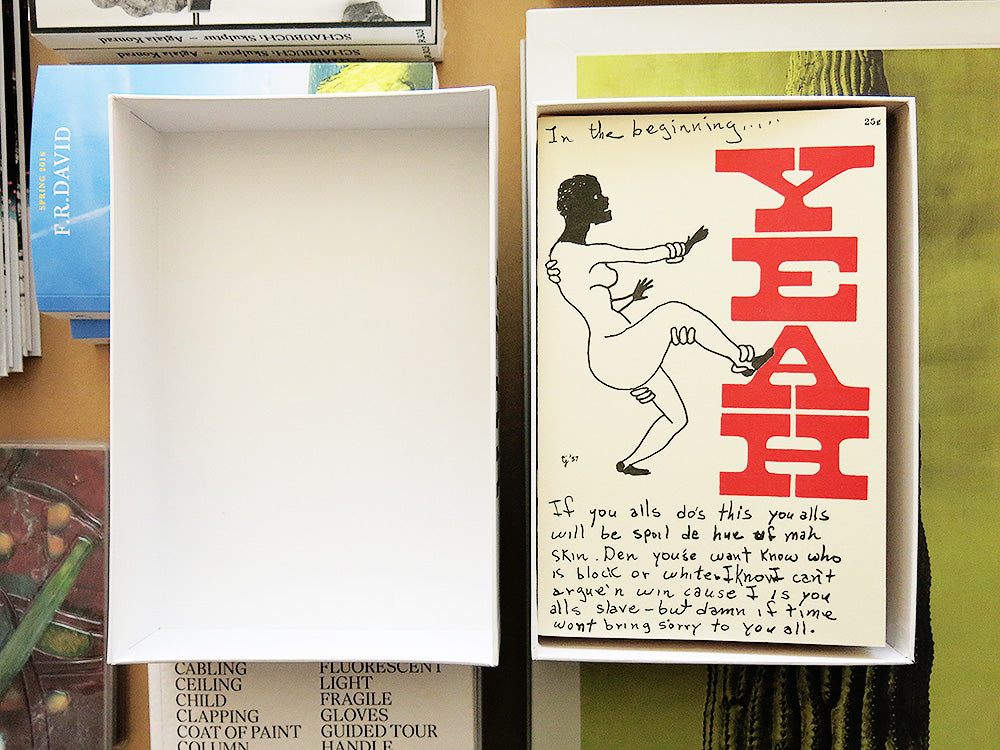 SCHAUBUCH: Skulptur – Aglaia Konrad
SCHAUBUCH: Skulptur – Aglaia Konrad
SPRING 2018
F.R.DAVID
In the beginning.....
25¢
YEAH
tj '37
If you alls do's this you alls
will be spoil de hue of mah
skin. Den youse want know who
is block or white. I know I can't
argue'n win cause I is you
alls slave – but damn if time
wont bring sorry to you all.
CABLING
CEILING
CHILD
CLAPPING
COAT OF PAINT
COLUMN
FLUORESCENT
LIGHT
FRAGILE
GLOVES
GUIDED TOUR
HANDLE